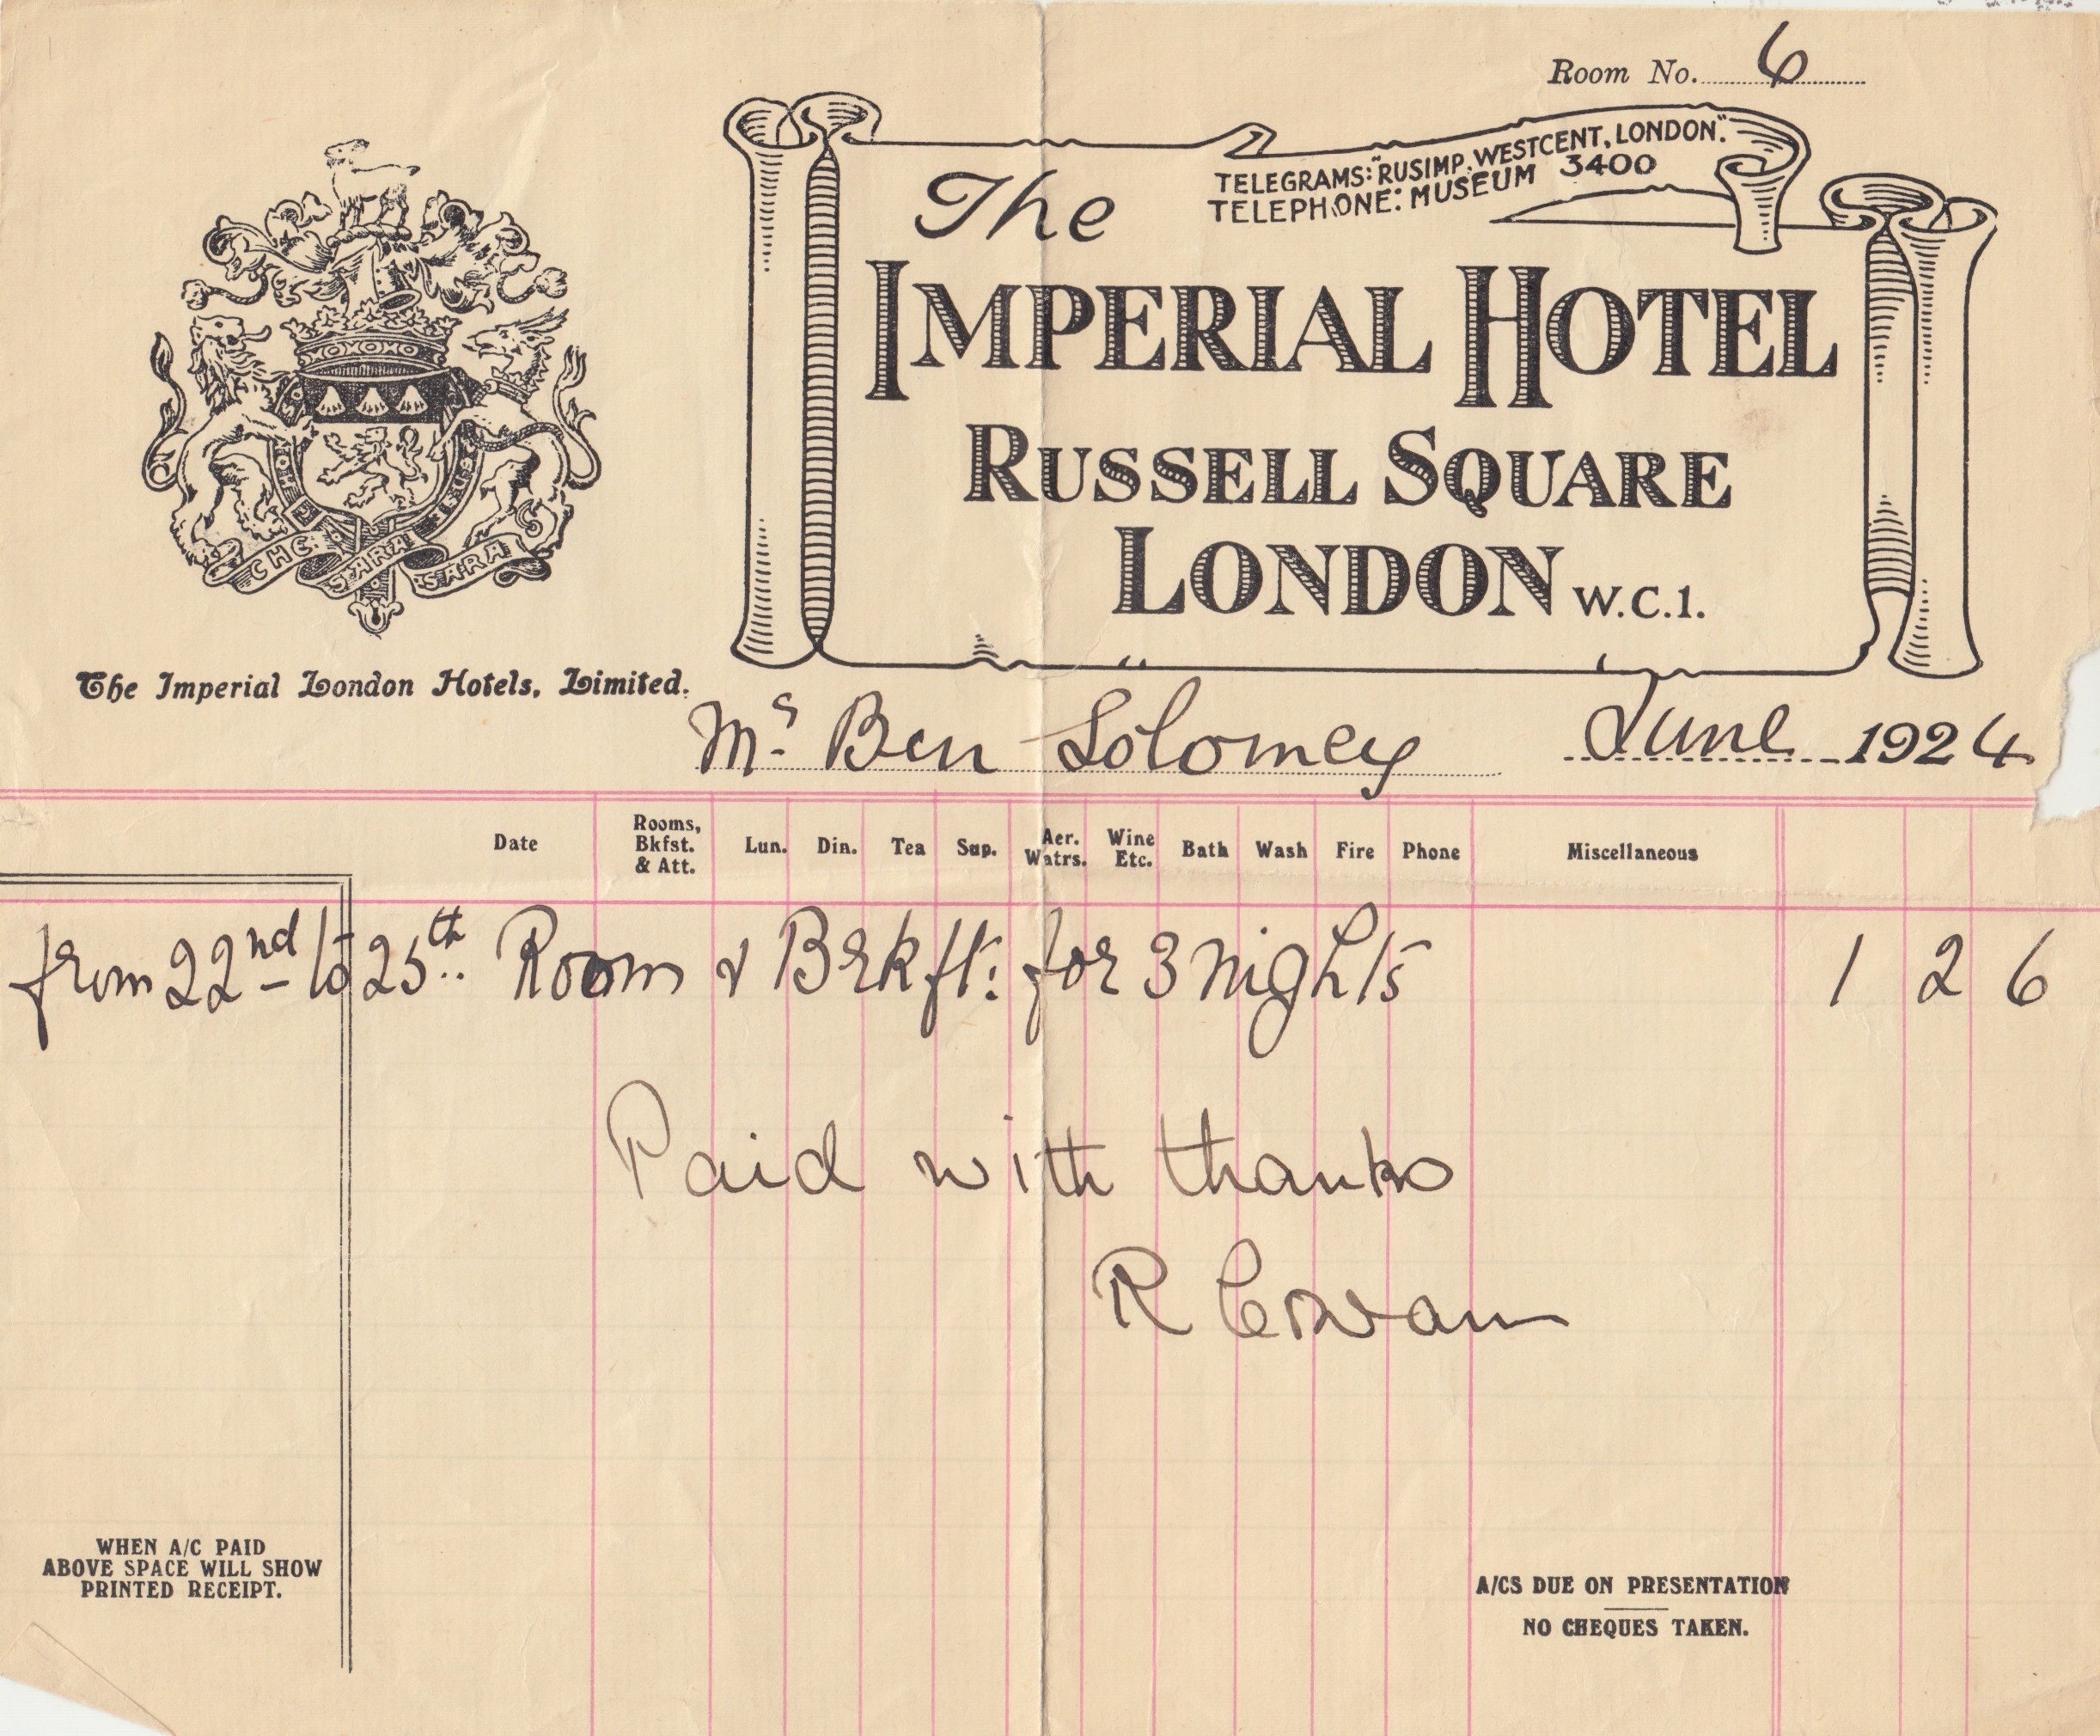 Room No. 6
TELEGRAMS: "RUSIMP, WESTCENT, LONDON".
TELEPHONE: MUSEUM 3400
The
IMPERIAL HOTEL
RUSSELL SQUARE
LONDON W.C.1.
CHE SARA SARA
The Imperial London Hotels, Limited.
Ms Ben Solomey June 1924
Date Rooms, Bkfst. & Att. Lun. Din. Tea Sup. Aer. Watrs. Wine Etc. Bath Wash Fire Phone Miscellaneous
from 22nd to 25th Room & Brkft: for 3 nights 1 2 6
Paid with thanks
R Cowan
WHEN A/C PAID
ABOVE SPACE WILL SHOW
PRINTED RECEIPT.
A/CS DUE ON PRESENTATION
NO CHEQUES TAKEN.